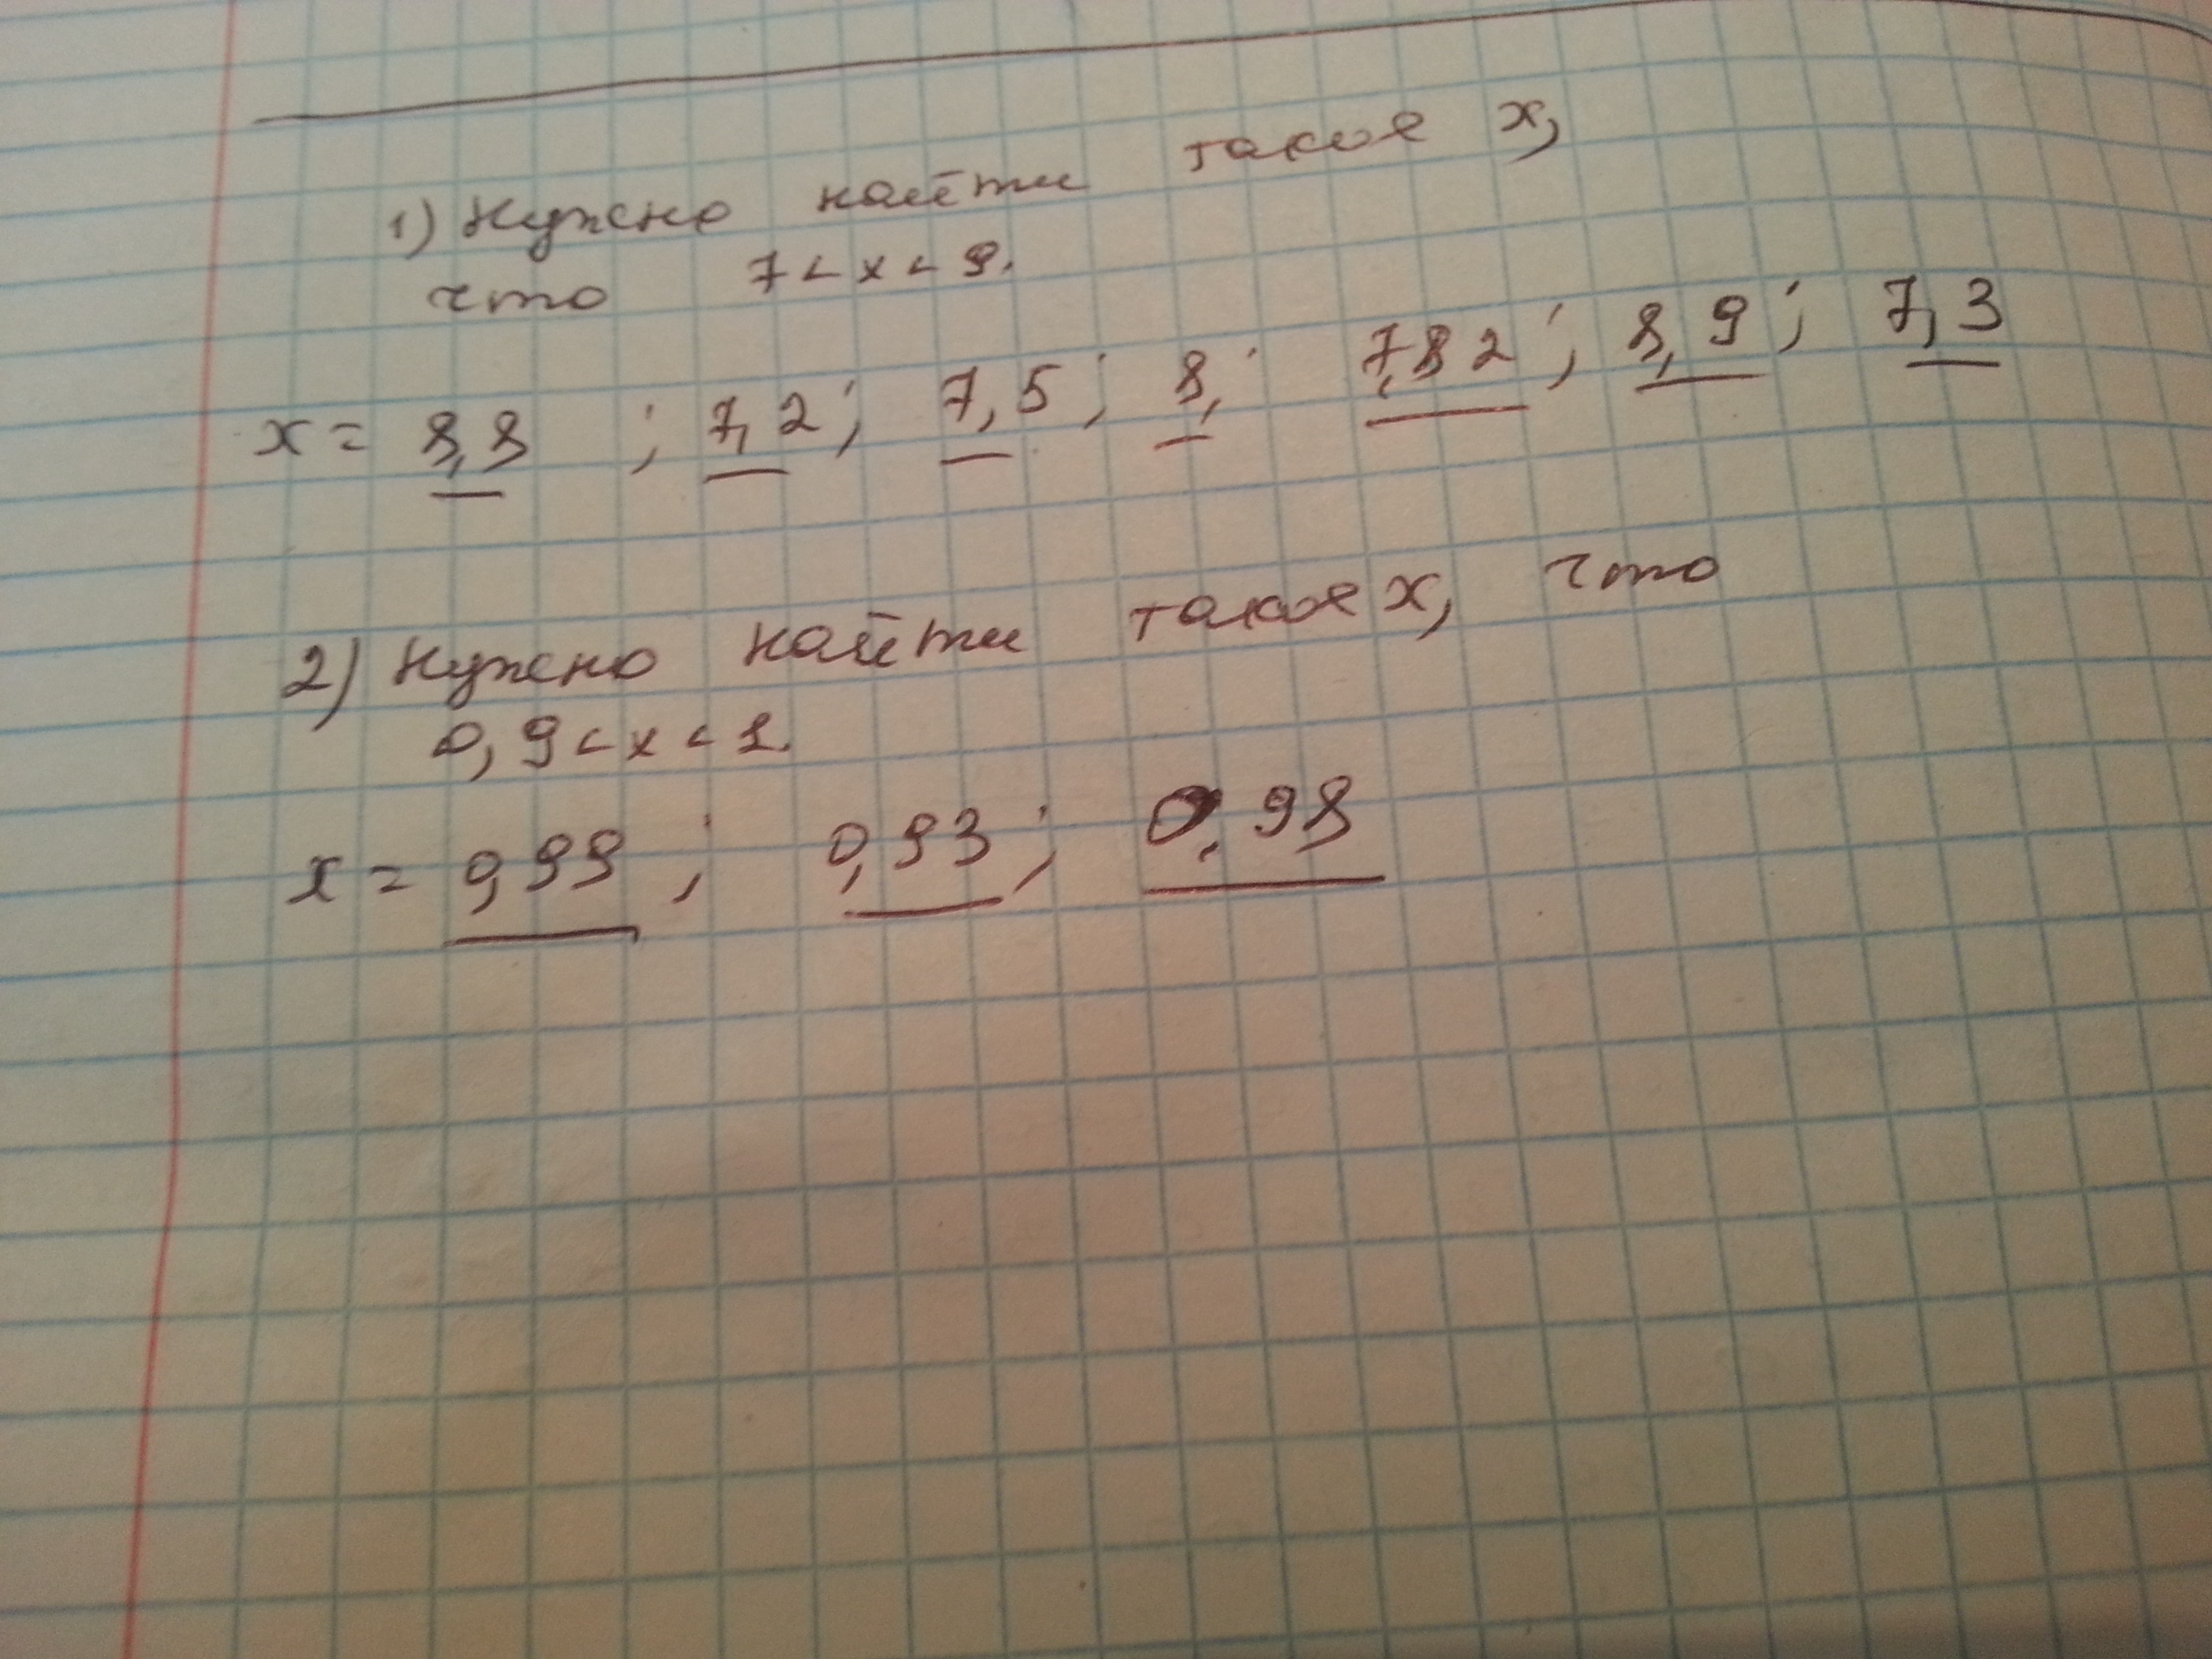 1) Нужно найти такое x,
что 7 < x < 9.
x = 8,8 ; 7,2 ; 7,5 ; 8 ; 7,82 ; 8,9 ; 7,3
2) Нужно найти такое x, что
0,9 < x < 1.
x = 0,99 ; 0,93 ; 0,98